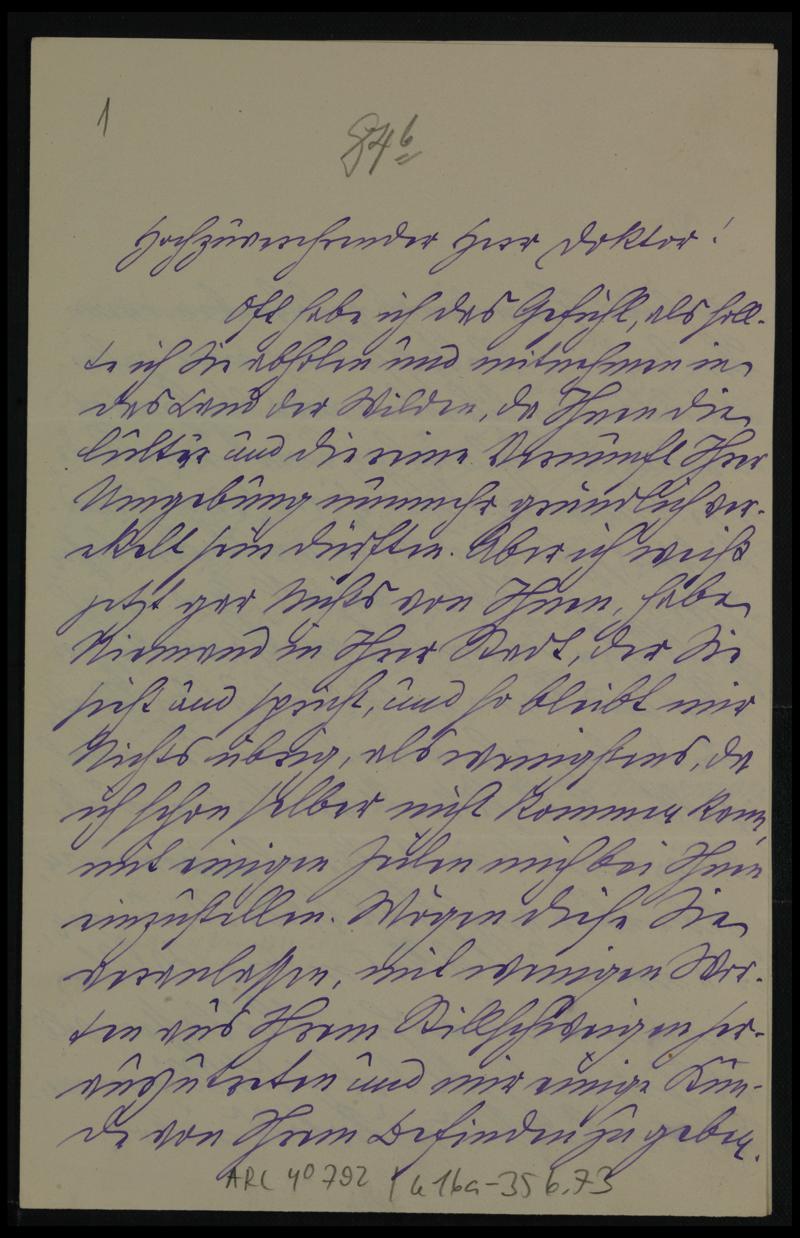 1
84b
Hochzuverehrender Herr Doktor!
Oft habe ich das Gefühl, als soll-
te ich Sie abholen und mitnehmen in
das Land der Wilden, da Ihnen die
Cultur und die reine Vernunft Ihrer
Umgebung nunmehr gründlich ver-
ekelt sein dürften. Aber ich weiß
jetzt gar Nichts von Ihnen, habe
Niemand in Ihrer Stadt, der Sie
sieht und spricht, und so bleibt mir
Nichts übrig, als wenigstens, da
ich schon selber nicht kommen kann,
mit einigen Zeilen mich bei Ihnen
einzustellen. Mögen diese Sie
veranlassen, mit wenigen Wor-
ten aus Ihrem Stillschweigen her-
auszutreten und mir einige Kun-
de von Ihrem Befinden zu geben.
ARC 4° 792 / a 16a-35 b.73